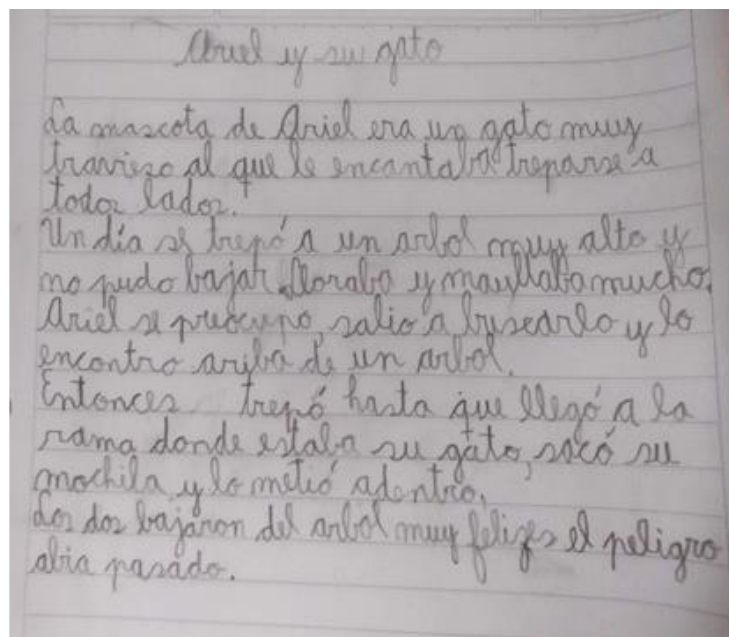 Ariel y su gato
La mascota de Ariel era un gato muy
travieso al que le encantaba treparse a
todos lados.
Un día se trepó a un arbol muy alto y
no pudo bajar. lloraba y maullaba mucho.
Ariel se preocupo, salio a buscarlo y lo
encontro ariba de un arbol.
Entonces trepó hasta que llegó a la
rama donde estaba su gato, sacó su
mochila y lo metió adentro.
Los dos bajaron del arbol muy felizes el peligro
abia pasado.